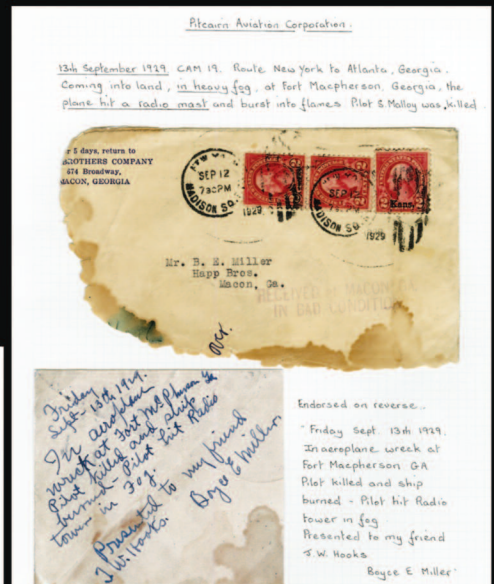 Pitcairn Aviation Corporation.
13th September 1929. CAM 19. Route New York to Atlanta, Georgia.
Coming into land, in heavy fog, at Fort Macpherson, Georgia, the
plane hit a radio mast and burst into flames. Pilot S. Malloy was killed.
r 5 days, return to
BROTHERS COMPANY
674 Broadway,
MACON, GEORGIA
SEP 12
730PM
1929
MADISON SQ.
SEP 12
1929
MADISON SQ.
Kans.
Mr. B. E. Miller
Happ Bros.
Macon, Ga.
RECEIVED AT MACON, GA
IN BAD CONDITION
over
Friday
Sept - 13th 1929.
In aeroplane
wreck at Fort McPherson Ga
Pilot killed and ship
burned - Pilot hit Radio
tower in Fog.
Presented to my friend
J. W. Hooks.
Boyce E Miller
Endorsed on reverse..
"Friday Sept. 13th 1929.
In aeroplane wreck at
Fort Macpherson GA
Pilot killed and ship
burned - Pilot hit Radio
tower in fog
Presented to my friend
J. W. Hooks
Boyce E Miller"